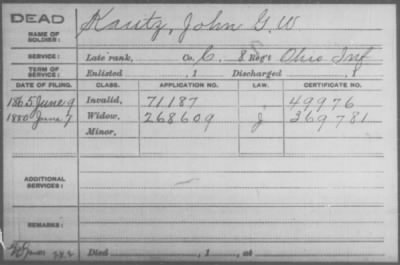 DEAD
NAME OF SOLDIER: Kautz, John G. W
SERVICE: Late rank, Co. C. 8 Reg't Ohio Inf
TERM OF SERVICE: Enlisted , 1 Discharged , 1
DATE OF FILING. CLASS. APPLICATION NO. LAW. CERTIFICATE NO.
1865 June 9 Invalid, 71187 49976
1880 June 7 Widow, 268609 J 369781
Minor,
ADDITIONAL SERVICES:
REMARKS:
Died , 1 , at